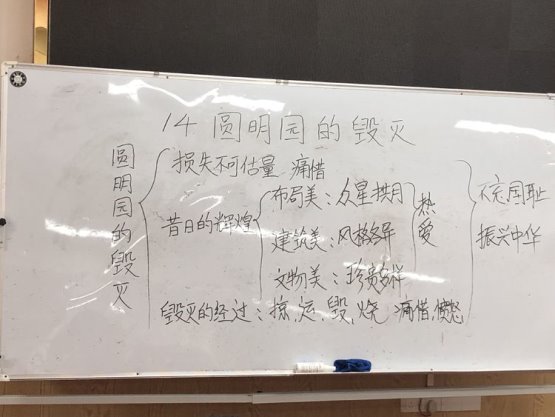 14 圆明园的毁灭
圆明园的毁灭
损失不可估量 痛惜
昔日的辉煌
布局美：众星拱月
建筑美：风格各异
文物美：珍贵多样
热爱
毁灭的经过：掠、运、毁、烧 痛惜、愤怒
不忘国耻
振兴中华